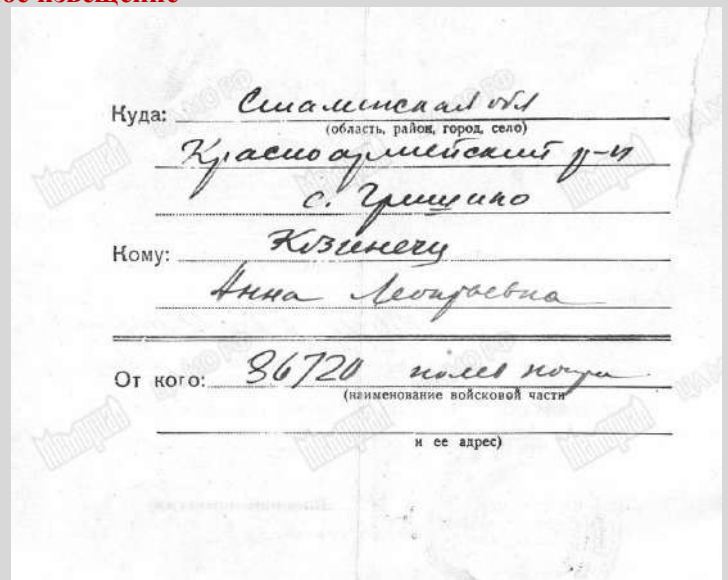 ое извещение
Куда: Сталинская обл
(область, район, город, село)
Красноармейский р-н
с. Гришино
Кому: Козинецу
Анна Леонтьевна
От кого: 36720 полев почта
(наименование войсковой части
и ее адрес)